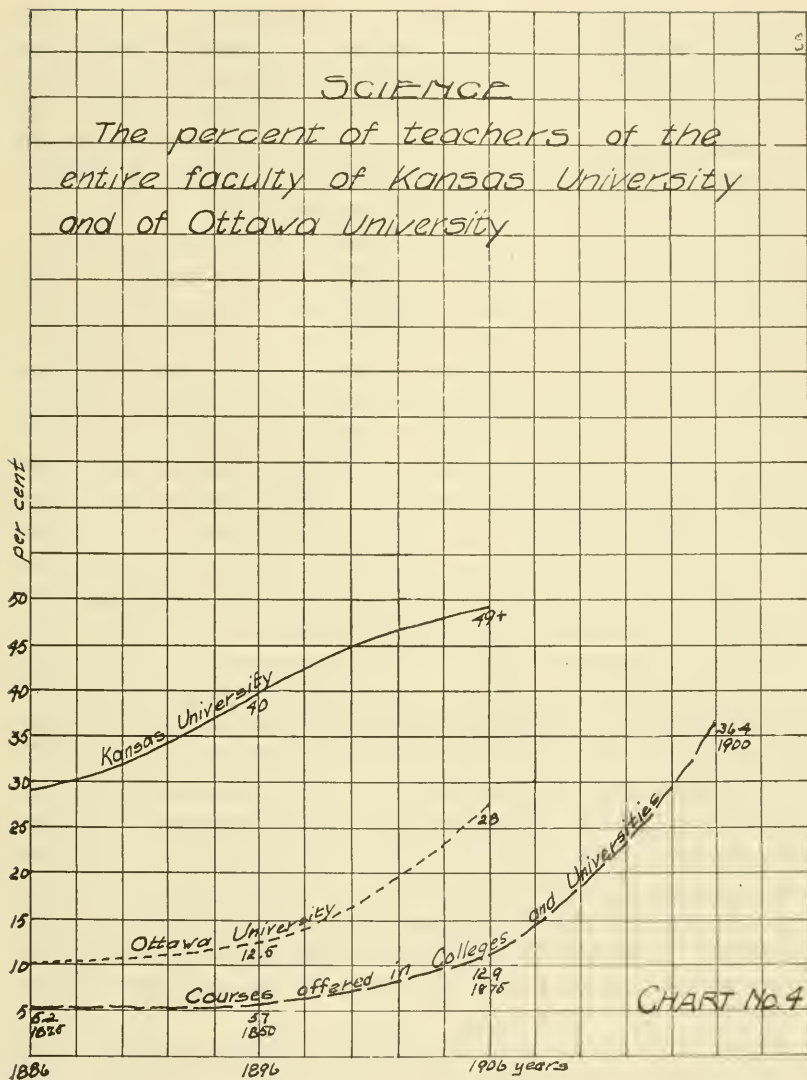 SCIENCE
The percent of teachers of the
entire faculty of Kansas University
and of Ottawa University
per cent
50
45
40
35
30
25
20
15
10
5
Kansas University
40
49+
Ottawa University
12.5
28
Courses offered in Colleges and Universities
5.2
1825
5.7
1850
12.9
1875
36.4
1900
CHART No. 4
1886
1896
1906 years